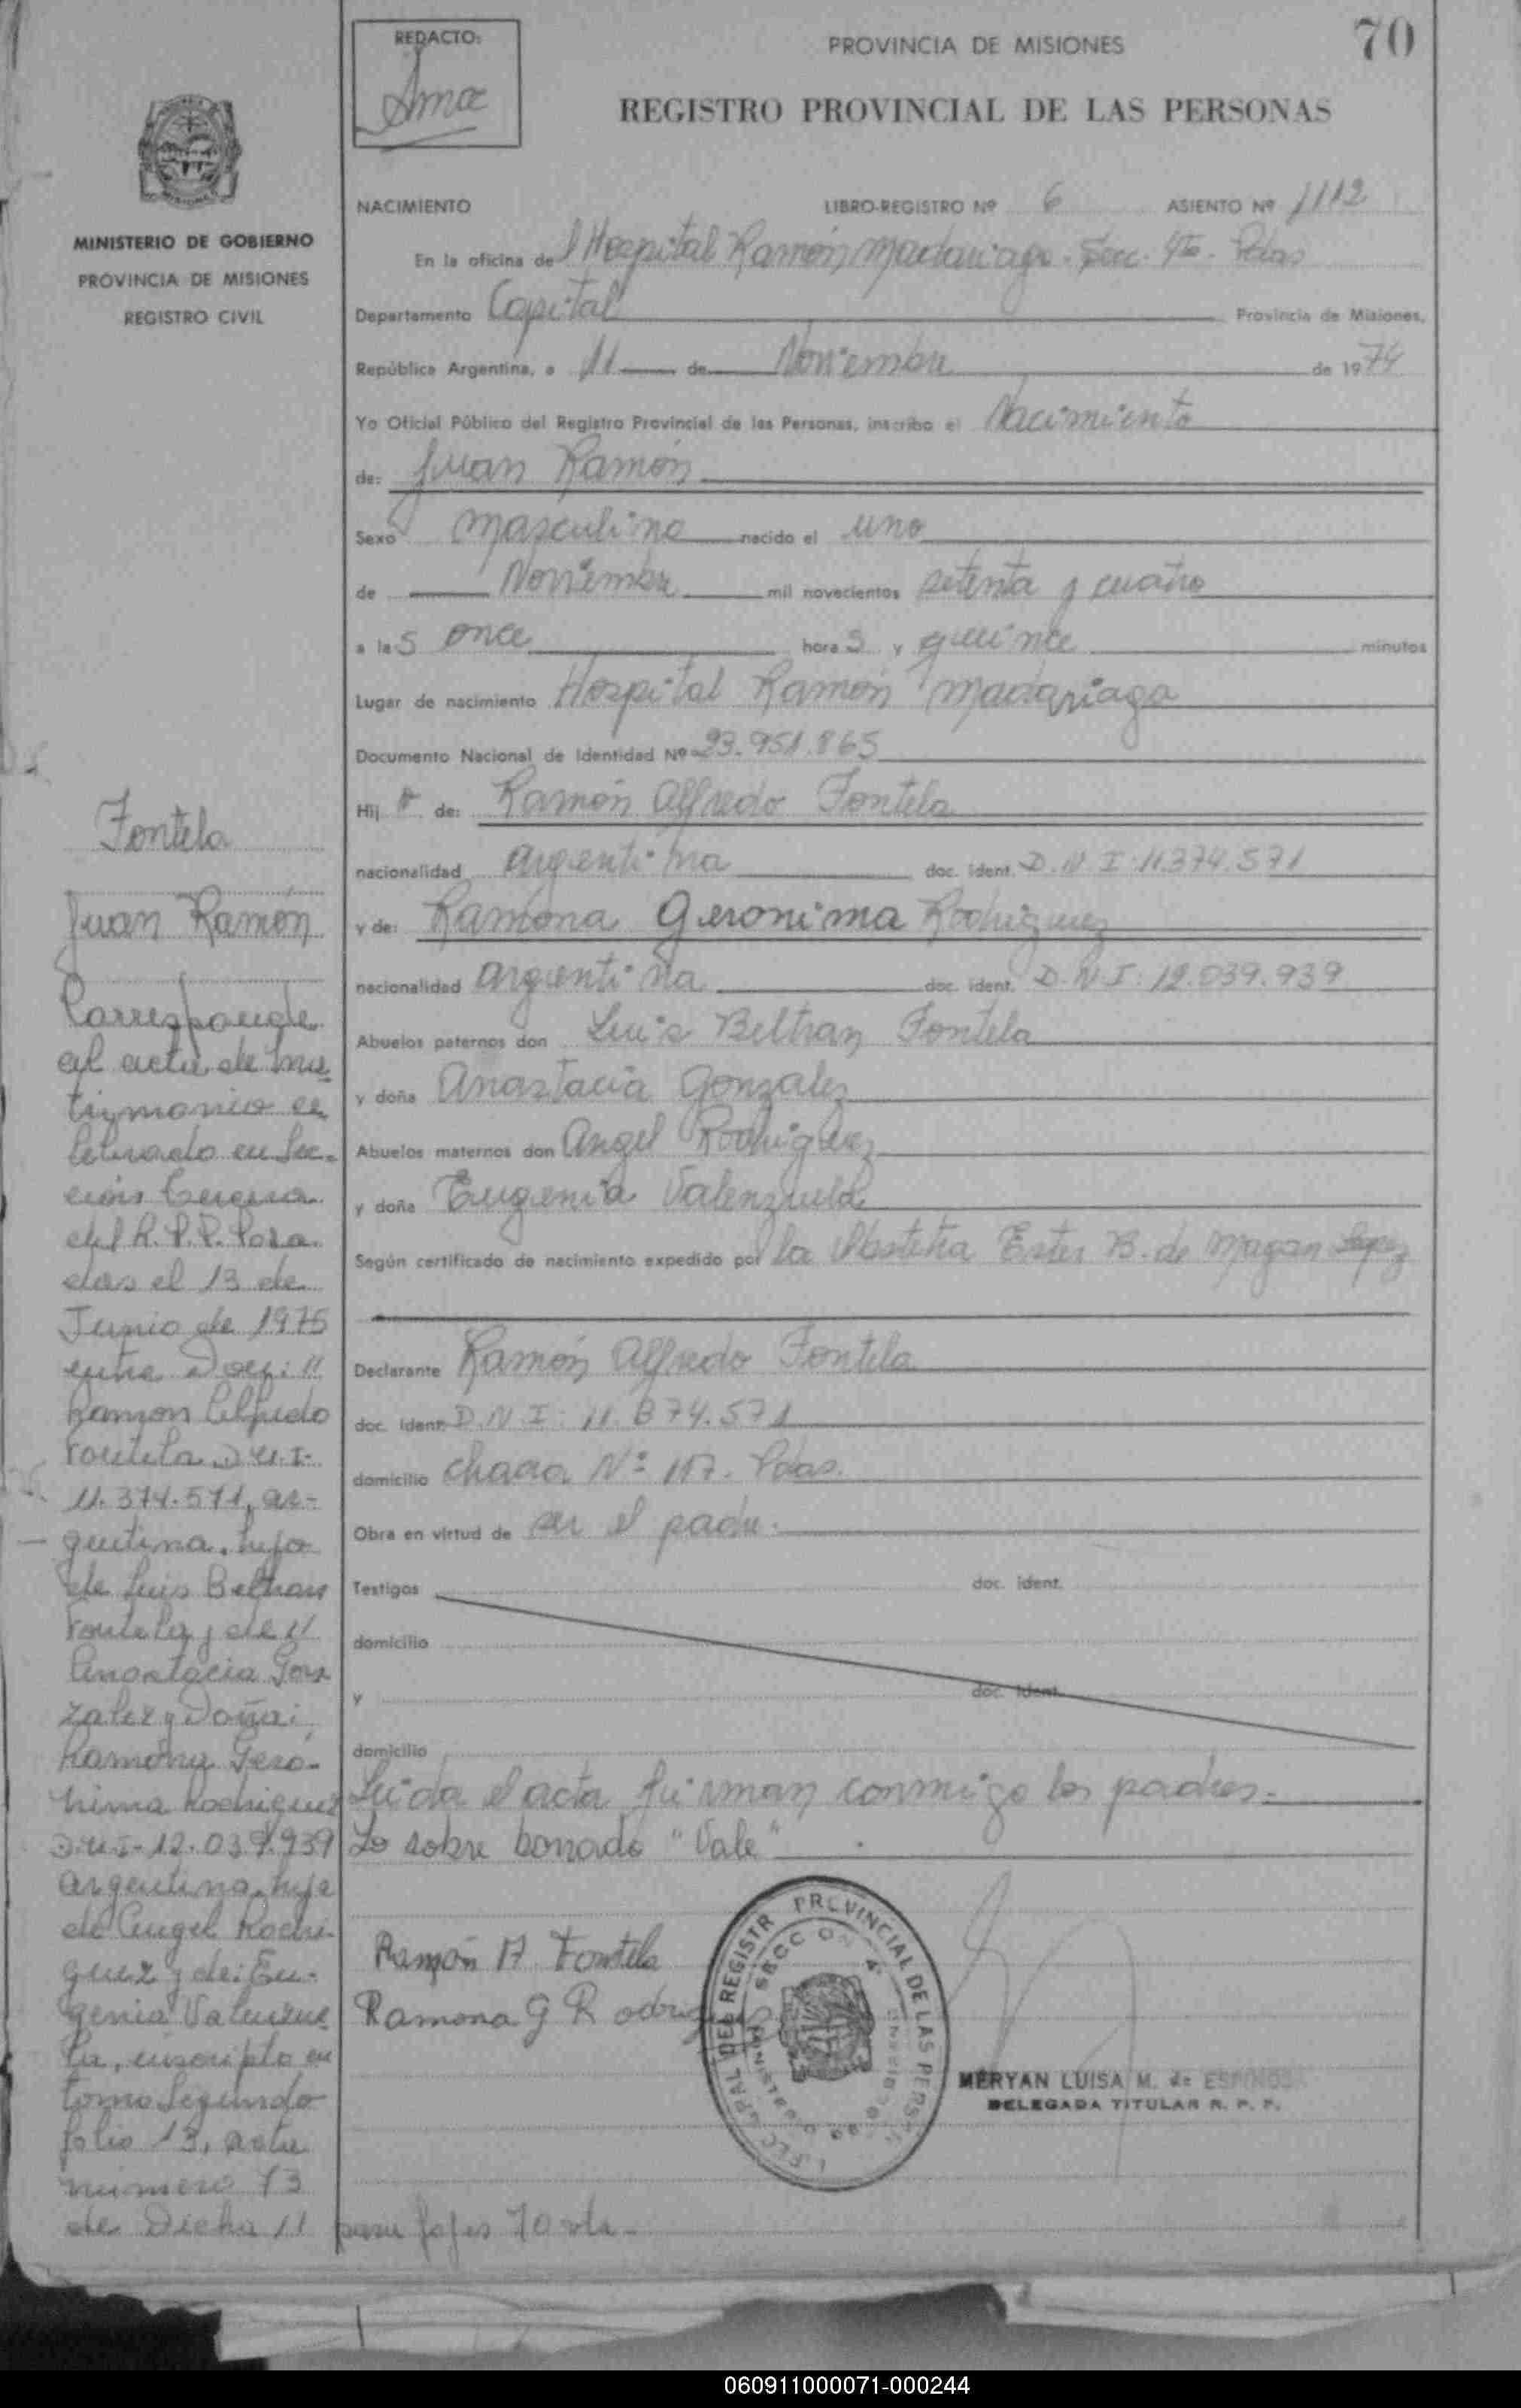 REDACTO:
PROVINCIA DE MISIONES
70
REGISTRO PROVINCIAL DE LAS PERSONAS
NACIMIENTO LIBRO-REGISTRO Nº 6 ASIENTO Nº 1112
En la oficina del Hospital Ramón Madariaga. Secc. 4ta. Pdas
Departamento Capital Provincia de Misiones,
República Argentina, a 11 de Noviembre de 1974
Yo Oficial Público del Registro Provincial de las Personas, inscribo el Nacimiento
de: Juan Ramón
Sexo Masculino nacido el uno
de Noviembre mil novecientos setenta y cuatro
a las once horas y quince minutos
Lugar de nacimiento Hospital Ramón Madariaga
Documento Nacional de Identidad Nº 23.951.865
Hijo de: Ramón Alfredo Fontela
nacionalidad argentina doc. ident. D.N.I. 11.374.571
y de: Ramona Geronima Rodriguez
nacionalidad argentina doc. ident. D.N.I: 12.039.939
Abuelos paternos don Luis Beltran Fontela
y doña Anastacia Gonzalez
Abuelos maternos don Angel Rodriguez
y doña Eugenia Valenzuela
Según certificado de nacimiento expedido por la Obstetra Ester B. de Magan Lopez
Declarante Ramón Alfredo Fontela
doc. ident. D.N.I: 11.374.571
domicilio chacra Nº 117. Pdas.
Obra en virtud de ser el padre.
Testigos doc. ident.
domicilio
y doc. ident.
domicilio
Leida el acta firman conmigo los padres.
Lo sobre borrado "Vale"
Ramón A Fontela
Ramona G Rodriguez
MERYAN LUISA M. de ESPINOSA
DELEGADA TITULAR R. P. P.
MINISTERIO DE GOBIERNO
PROVINCIA DE MISIONES
REGISTRO CIVIL
Fontela
Juan Ramón
Corresponde
al acta de ma-
trimonio ce
lebrado en Sec-
ción tercera
del R.P.P. Posa
das el 13 de
Junio de 1975
entre Don: //
Ramon Alfredo
Fontela D.N.I-
11.374.571, ar-
gentina, hijo
de Luis Beltran
Fontela y de //
Anastacia Gon
zalez y Doña:
Ramona Gero-
nima Rodriguez
D.N.I-12.039.939
argentina, hija
de Angel Rodri-
guez y de: Eu-
genia Valenzue
la, inscripto en
tomo Segundo
folio 13, acta
número 73
de Dicha // pasa fojas 70 vta-
060911000071-000244